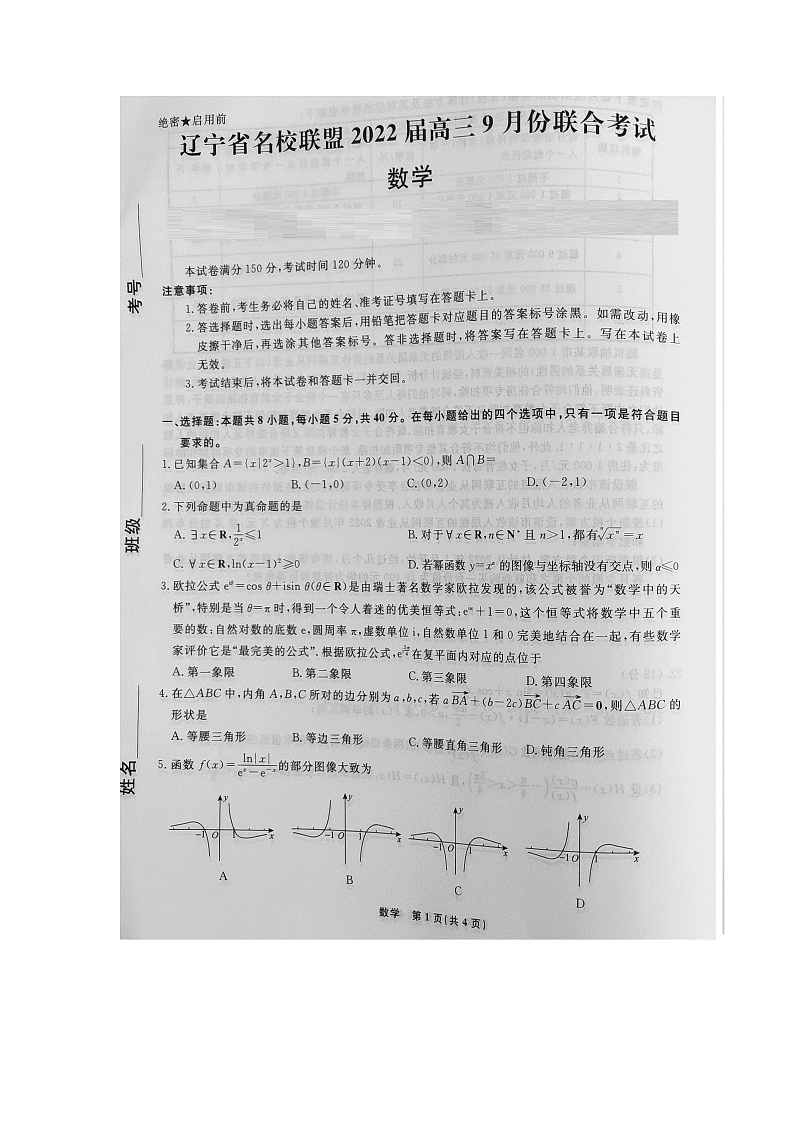 绝密★启用前
辽宁省名校联盟2022届高三9月份联合考试
数学
本试卷满分150分,考试时间120分钟。
注意事项:
1.答卷前,考生务必将自己的姓名、准考证号填写在答题卡上。
2.答选择题时,选出每小题答案后,用铅笔把答题卡对应题目的答案标号涂黑。如需改动,用橡
皮擦干净后,再选涂其他答案标号。答非选择题时,将答案写在答题卡上。写在本试卷上
无效。
3.考试结束后,将本试卷和答题卡一并交回。
一、选择题:本题共8小题,每小题5分,共40分。在每小题给出的四个选项中,只有一项是符合题目
要求的。
1.已知集合A={x|2ˣ>1},B={x|(x+2)(x-1)<0},则A∩B=
A.(0,1) B.(-1,0) C.(0,2) D.(-2,1)
2.下列命题中为真命题的是
A.∃x∈R,1/2ˣ≤1 B.对于∀x∈R,n∈N*且n>1,都有ⁿ√xⁿ=x
C.∀x∈R,ln(x-1)²≥0 D.若幂函数y=xᵅ的图像与坐标轴没有交点,则α≤0
3.欧拉公式e^{iθ}=cos θ+isin θ(θ∈R)是由瑞士著名数学家欧拉发现的,该公式被誉为“数学中的天
桥”,特别是当θ=π时,得到一个令人着迷的优美恒等式:e^{iπ}+1=0,这个恒等式将数学中五个重
要的数:自然对数的底数e,圆周率π,虚数单位i,自然数单位1和0完美地结合在一起,有些数学
家评价它是“最完美的公式”.根据欧拉公式,在复平面内对应的点位于
A.第一象限 B.第二象限 C.第三象限 D.第四象限
4.在△ABC中,内角A,B,C所对的边分别为a,b,c,若a BA→+(b-2c)BC→+c AC→=0,则△ABC的
形状是
A.等腰三角形 B.等边三角形 C.等腰直角三角形 D.钝角三角形
5.函数f(x)=ln|x|/(eˣ-e⁻ˣ)的部分图像大致为
y y y y
-1 O 1 x -1 O 1 x -1 O 1 x -1 O 1 x
A B C D
数学 第1页(共4页)
考号
班级
姓名